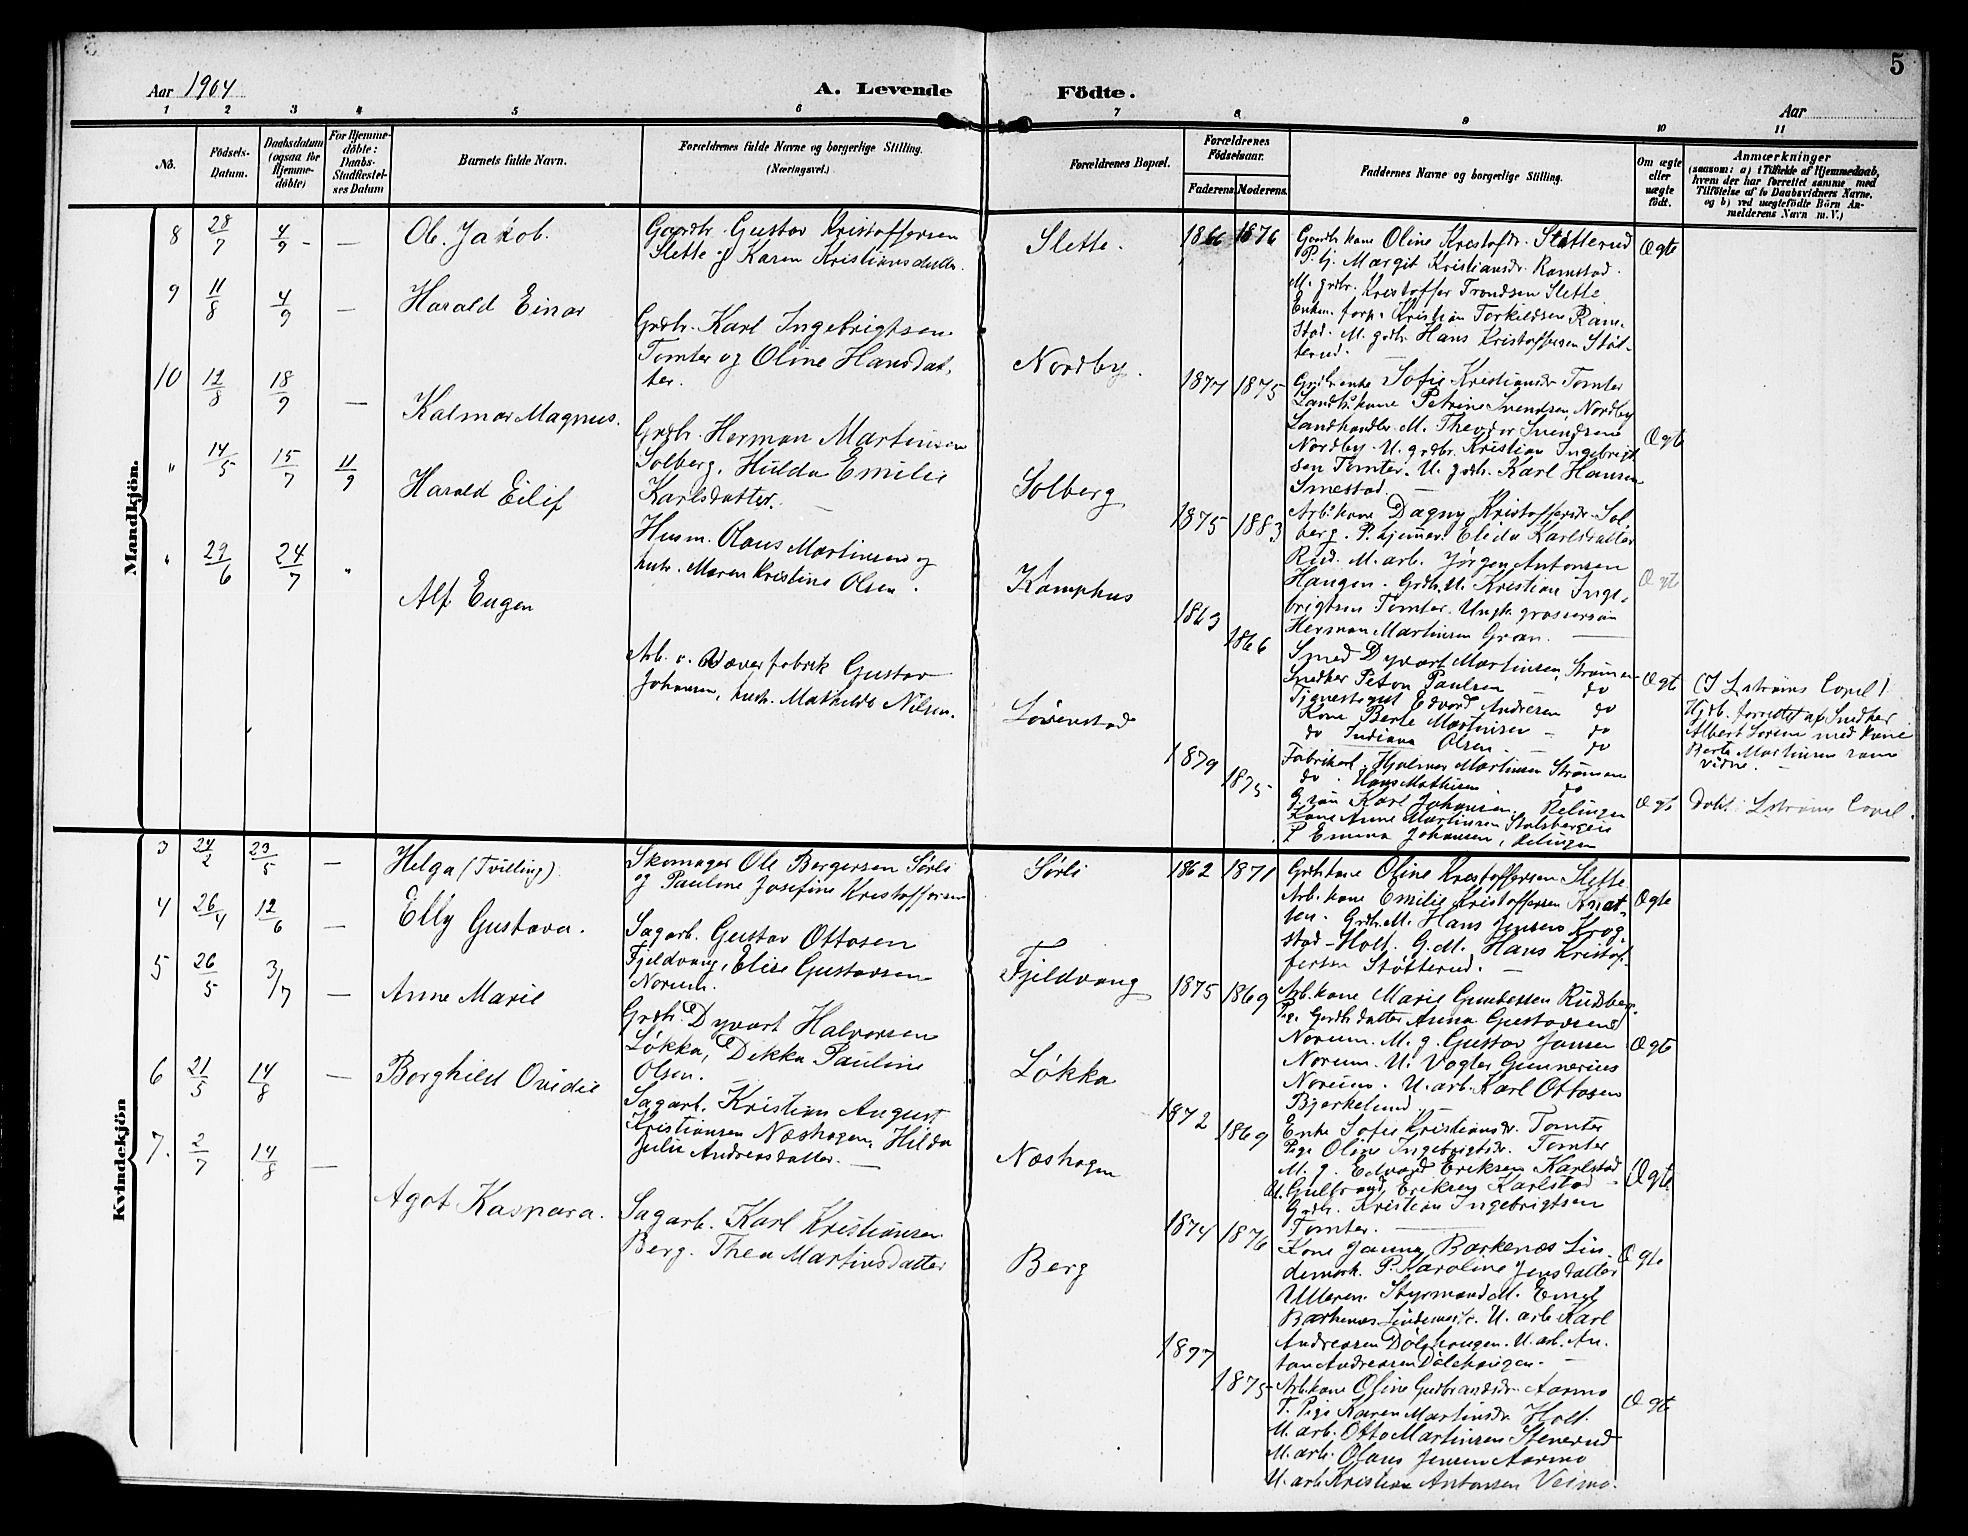 5
Aar 1904
A. Levende Födte.
Aar
1 2 3 4 5 6 7 8 9 10 11
No.
Födsels-Datum.
Daabsdatum (ogsaa for Hjemme-döbte)
For Hjemme-döbte: Daabs-Stadfæstel-ses Datum
Barnets fulde Navn.
Forældrenes fulde Navne og borgerlige Stilling.
(Næringsvei.)
Forældrenes Bopæl.
Forældrenes Födselsaar.
Faderens. Moderens.
Faddernes Navne og borgerlige Stilling.
Om ægte eller uægte födt.
Anmærkninger
(saasom: a) i Tilfælde af Hjemmedaab,
hvem der har forrettet samme med
Tilföielse af to Daabsvidners Navne,
og b) ved uægtefödte Börn An-
melderens Navn m.V.)
Mandkjön.
8 28/7 4/9 — Ole Jakob.
Gaardbr. Gustav Kristoffersen
Slette og Karen Kristiansdatter.
Slette.
1866 1876
Gaardbr.kone Oline Kristofdr. Støtterud
P. hj. Margit Kristiansdr. Ramstad.
M. grdbr. Kristoffer Trondsen Slette.
Enkem. forp. Kristian Torkildsen Ram-
stad. M. grdbr. Hans Kristoffersen Støt-
terud. —
Ægte
9 11/8 4/9 — Harald Einar
Grdbr. Karl Ingebrigtsen
Tomter og Oline Hansdat-
ter.
Nordby.
1877 1875
Grdbr.enke Sofie Kristiansdr Tomter
Landh.kone Petrine Svendsen Nordby
Landhandler M. Theodor Svendsen
Nordby. U. grdbr. Kristian Ingebrigt-
sen Tomter. U. grdb. Karl Hansen
Smestad. —
Ægte
10 12/8 18/9 — Kalmar Magnus.
Grdbr. Herman Martinsen
Solberg, Hulda Emilie
Karlsdatter. —
Solberg
1875 1883
Arb.kone Dagny Kristoffersdr. Sol-
berg. P. hjemmev. Elida Karlsdatter
Rud. M. arb. Jørgen Antonsen
Haugen. Grdb. U. Kristian Inge-
brigtsen Tomter. Ungk. grossersøn
Herman Martinsen Gran. —
Ægte
" 14/5 15/7 11/9 Harald Eilif
Husm. Olaus Martinsen og
hustr. Maren Kristine Olsen.
Kamphus
1863 1866
Smed Dyvart Martinsen, Strømmen
Snedker Peton Paulsen do
Tjenestegut Edvard Andresen do
Kone Berte Martinsen — do
do Indiana Olsen — do
Ægte
(I Lstrøms Capel)
Hjdb. forrettet af Snedker
Albert Sørem med kone
Berte Martinsen som
vidne. —
" 29/6 24/7 " Alf Eugen
Arb. v. Væverfabrik Gustav
Johansen, hustr. Mathilde Nilsen.
Løvenstad
1879 1875
Fabrikarb. Hjalmar Martinsen Strømmen
do Hans Mathisen do
G. søn Karl Johansen, Relingen
Kone Anne Martinsen Stalsbergeie
P Emma Johansen, Relingen
Ægte
Døbt i Lstrøms Capel.
Kvindekjön
3 24/2 23/5 — Helga (Tvilling).
Skomager Ole Bergersen Sørli
og Pauline Josefine Kristoffersen
Sørli
1862 1871
Grdb.kone Oline Kristoffersen Slette
Arb.kone Emilie Kristoffersen Knat-
ten. Grdb. M. Hans Jensen Krog-
stad-Holt. G. M. Hans Kristof-
fersen Støtterud. —
Ægte
4 26/4 12/6 — Elly Gustava.
Sagarb. Gustav Ottosen
Fjeldvang, Elise Gustavsen
Norum.
Fjeldvang
1875 1869
Arb.kone Marie Gundersen Rudsberg.
Pige Grdb datter Anna Gustavsen
Norum. M. g. Gustav Jansen
Norum. U. Vogter Gunnerius
Norum. U. arb. Karl Ottosen
Bjerkelund. —
Ægte
5 26/5 3/7 — Anne Marie
Grdb. Dyvart Halvorsen
Løkka, Dekka Pauline
Olsen. —
Løkka
1872 1869
Enke Sofie Kristiansdr. Tomter
Pige Oline Ingebrigtsdr. Tomter
M. g. Edvard Eriksen Karlstad
U. Gulbrand Eriksen Karlstad —
Grdb. Kristian Ingebrigtsen
Tomter. —
Ægte
6 21/5 14/8 — Borghild Ovidie
Sagarb. Kristian August
Kristiansen Næshagen, Hilda
Julie Andreasdatter. —
Næshagen
1874 1876
Kone Janna Barkenæs Lin-
demark. P. Karoline Jensdatter
Ulleren. Styrmand M. Emil
Barkenæs Lindemark. U. arb Karl
Andreasen Dølehaugen. U. arb. An-
ton Andreasen Dølehaugen. —
Ægte
7. 2/7 14/8 — Agot Kaspara.
Sagarb. Karl Kristiansen
Berg. Thea Martinsdatter
Berg
1877 1875
Arb.kone Oline Gudbrandsdr. Aarmo
T. Pige Karen Martinsdr. Holt.
U. arb. Otto Martinsen Stenerud
U. arb. Olaus Jensen Aarmo
U. arb Kristian Antonsen Veimo.
Ægte